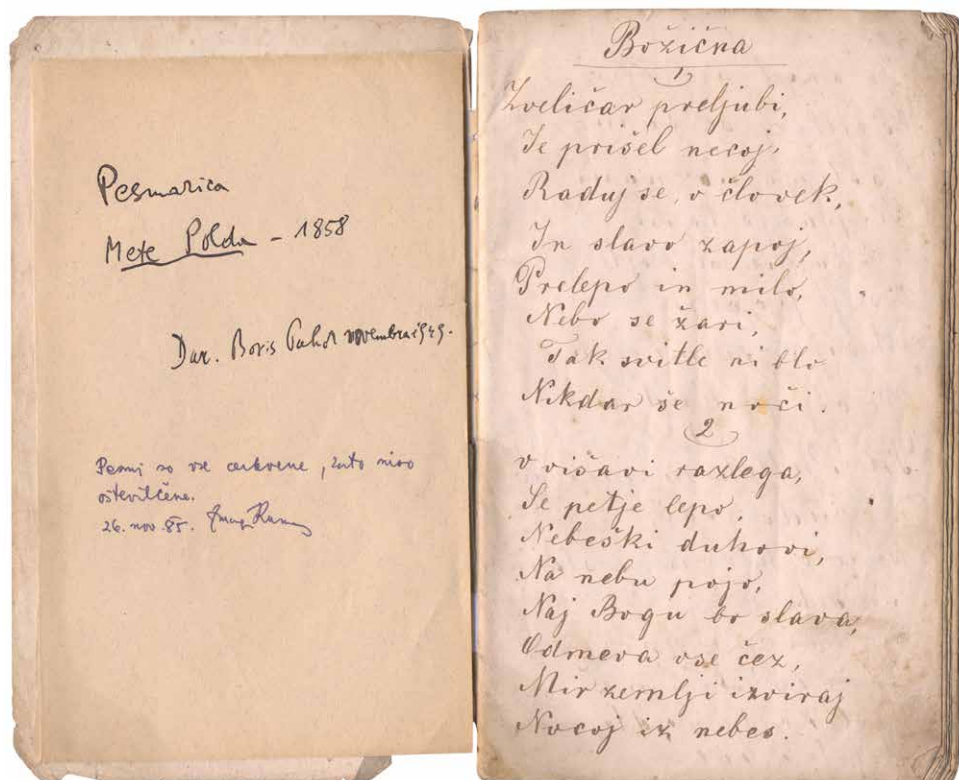 Pesmarica
Mete Polda - 1858
Dar. Boris Pahor novembra 1949.
Pesmi so vse cerkvene, zato niso
oštevilčene.
26. nov. 85.
Božična
1
Zveličar preljubi,
Je prišel necoj,
Raduj se, o človek,
In slavo zapoj,
Prelepo in milo,
Nebo se žari,
Tak svitle ni blo
Nikdar še noči.
2
V višavi razlega,
Se petje lepo,
Nebeški duhovi,
Na nebu pojo,
Naj Bogu bo slava,
Odmeva vse čez,
Mir zemlji izviraj
Nocoj iz nebes.